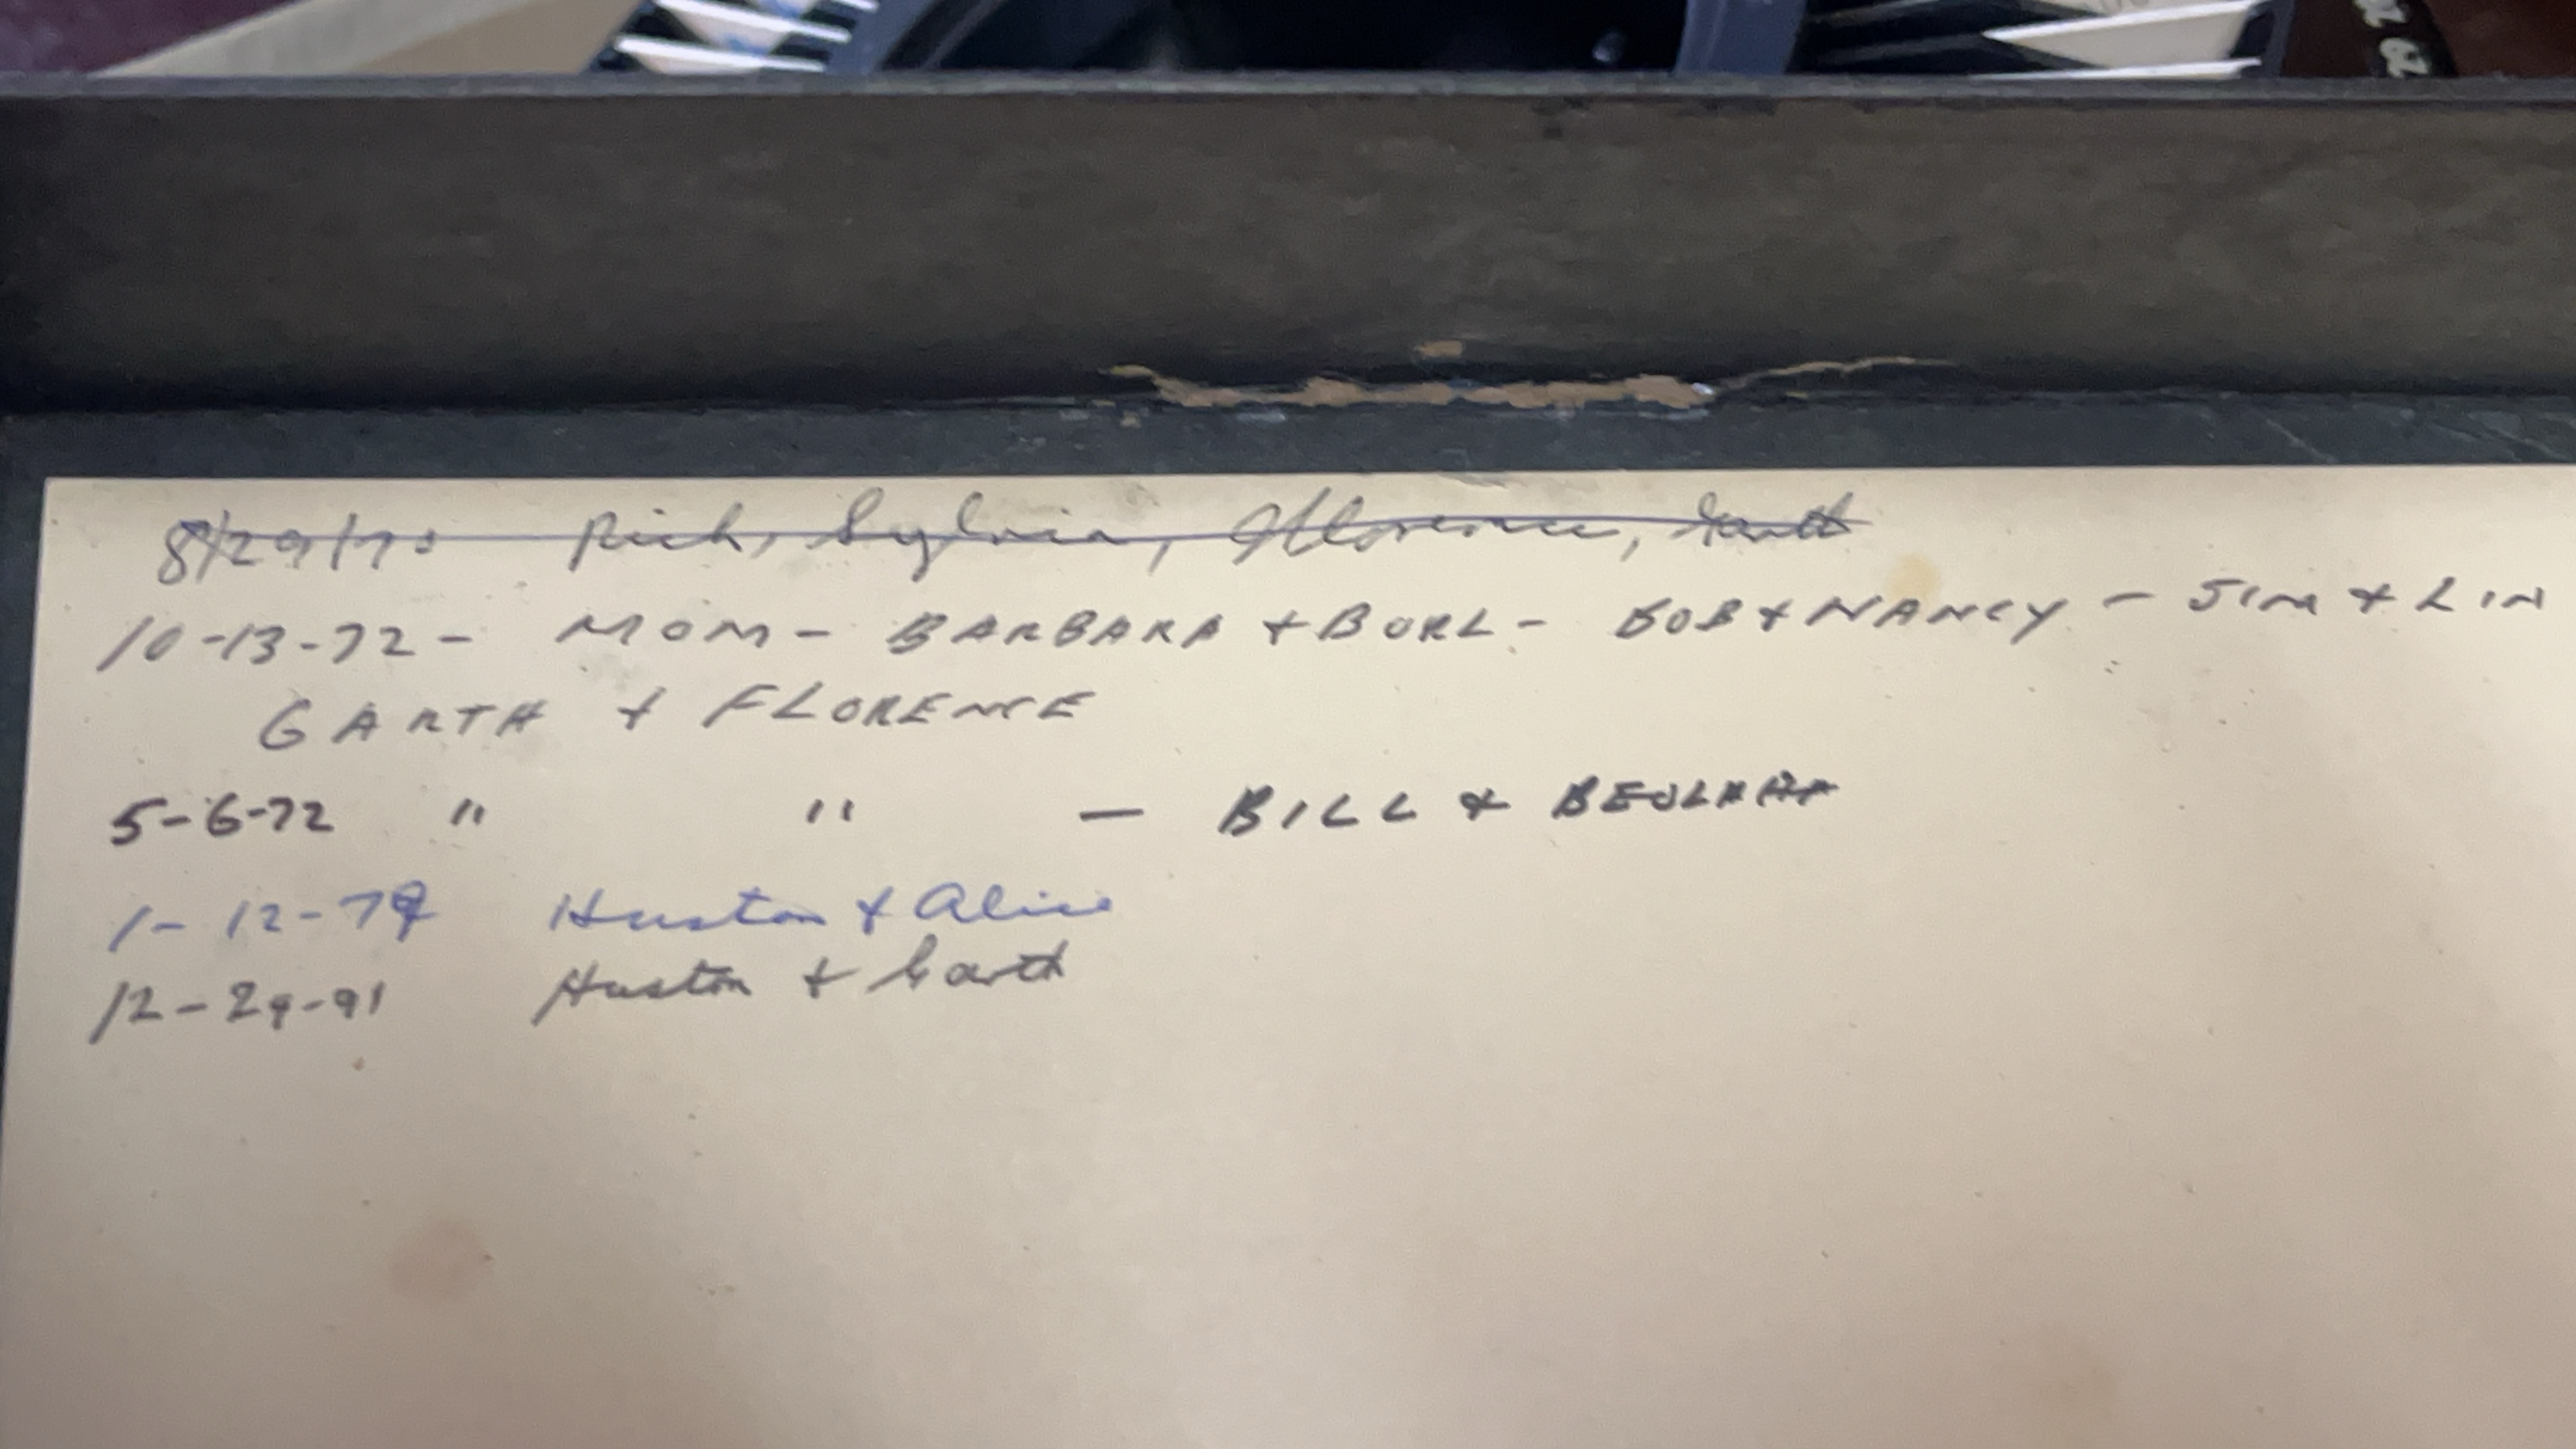 8/29/70 Rich, Sylvia, Florence, Garth
10-13-72 - MOM - BARBARA + BURL - BOB + NANCY - JIM + LIN
GARTH + FLORENCE
5-6-72 " " — BILL + BEULAH
1-12-79 Huston + Alice
12-29-91 Huston + Garth